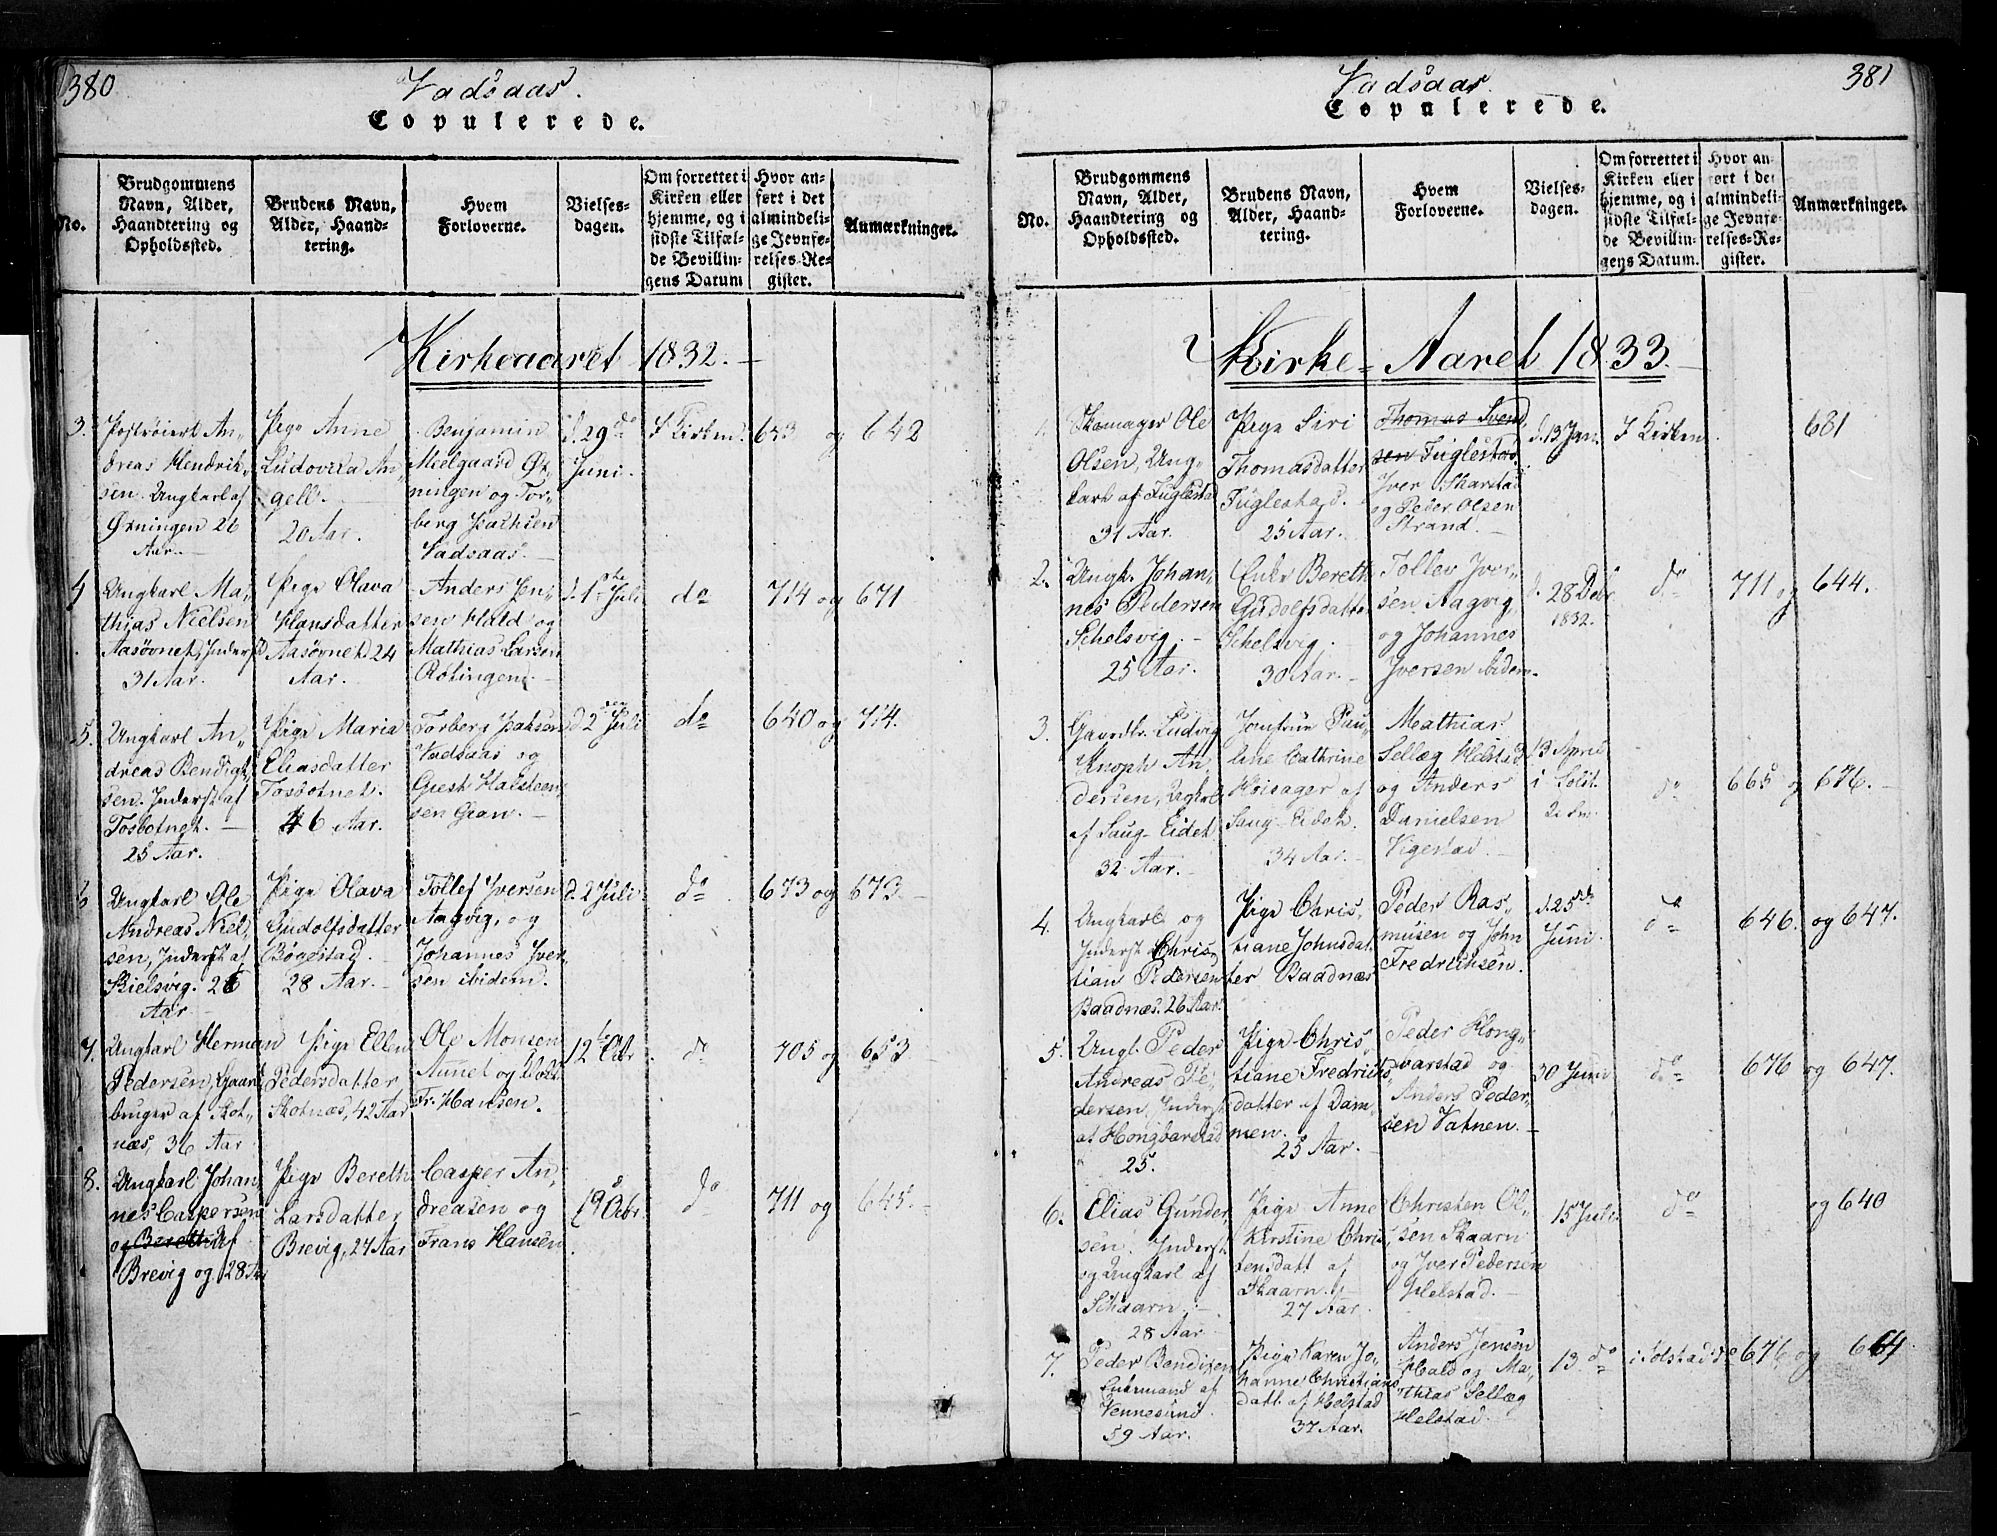 380
Vadsaas.
Copulerede.
No.
Brudgommens
Navn, Alder,
Haandtering og
Opholdssted.
Brudens Navn,
Alder, Haand-
tering.
Hvem
Forloverne.
Vielses-
dagen.
Om forrettet i
Kirken eller
hjemme, og i
sidste Tilfæl-
de Bevillin-
gens Datum
Hvor an-
ført i det
almindeli-
ge Jevnfø-
relses-Re-
gister.
Anmærkninger.
Kirkeaaret 1832.
3.
An-
dreas Hendrik-
sen. Ungkarl af
Ørningen 26
Aar.
Pige Anne
Ludovica An-
gell.
20 Aar.
Benjamin
Meelgaard Ør-
ningen og Tor-
berg Isachsen
Vadsaas.
d. 29de
Juni.
I Kirken.
643 og 642
4
Ungkarl Ma-
thias Nielsen
Aasøvnet, Inderst
31 Aar.
Pige Olava
Hansdatter
Aasøvnet 24
Aar.
Anders Jen-
sen Hald og
Mathias Larsen
Rotingen.
d. 1ste Juli
do
714 og 671
5.
Ungkarl An-
dreas Bendigt-
sen. Inderst af
Tosbotnet.
25 Aar.
Pige Maria
Eliasdatter
Tosbotnet.
46 Aar.
Torberg Isaksen
Vadsaas og
Giest Halsteen-
sen Gran.
d. 2den Juli
do
640 og 714.
6
Ungkarl Ole
Andreas Niel-
sen, Inderst af
Skielsvig. 26
Aar
Pige Olava
Gudolfsdatter
Bøgestad.
28 Aar.
Tollef Iversen
Aagvig, og
Johannes Iver-
sen ibidem.
d. 2 Juli
do
673 og 673.
7.
Ungkarl Herman
Pedersen, Gaard-
bruger af Skot-
næs, 36 Aar
Pige Ellen
Pedersdatter
Skotnæs, 42 Aar
Ole Monsen
Aunet og
Fr. Hansen.
12te Octr
do
705 og 653
8.
Ungkarl Johan-
nes Caspersen
og Bereth Af
Brevig og 28 Aar
Pige Bereth
Larsdatter
Brevig, 27 Aar
Casper An-
dreasen og
Frans Hansen
19 Octbr.
do
711 og 645.
381
Vadsaas.
Copulerede.
No.
Brudgommens
Navn, Alder,
Haandtering og
Opholdssted.
Brudens Navn,
Alder, Haand-
tering.
Hvem
Forloverne.
Vielses-
dagen.
Om forrettet i
Kirken eller
hjemme, og i
sidste Tilfæl-
de Bevillin-
gens Datum.
Hvor an-
ført i det
almindeli-
ge Jevnfø-
relses-Re-
gister.
Anmærkninger.
Kirke-Aaret 1833.
1.
Skomager Ole
Olsen, Ung-
karl af Fuglestad
31 Aar.
Pige Siri
Thomasdatter
Fuglestad.
25 Aar.
Thomas Svend-
sen Fuglestad.
Iver Skarstad
og Peder Olsen
Strand.
d. 13 Jan.
I Kirken
681
2.
Ungk. Johan-
nes Pedersen
Schelsvig.
25 Aar.
Enke Bereth
Gudolfsdatter
Schelsvig.
30 Aar.
Tollev Iver-
sen Aagvig,
og Johannes
Iversen ibidem.
d. 28 Debr.
1832.
do
711 og 644.
3.
Gaardbr. Ludvig
Knoph An-
dersen, Ungkarl
af Saug-Eidet
32 Aar.
Jomfrue Pau-
line Cathrine
Høisager af
Saug-Eidet.
34 Aar.
Mathias
Sellæg Helstad
og Anders
Danielsen
Vigestad.
13 April
i Solst.
do
665 og 676.
4.
Ungkarl og
Inderst Chris-
tian Pedersen
Baadnæs. 26 Aar.
Pige Chris-
tiane Johnsdat-
ter Baadnæs
Peder Ras-
musen og John
Fredriksen.
d. 25de
Juni.
do
646. og 647.
5.
Ungk. Peder
Andreas Pe-
dersen, Inderst
af Hongbarstad
25.
Pige Chris-
tiane Fredriks-
datter af Dam-
men.
25 Aar.
Peder Hong-
varstad og
Anders Peder-
sen Vatnen.
30 Juni
do
676 og 647.
6.
Elias Gunder-
sen. Inderst
og Ungkarl af
Schaarn.
28 Aar
Pige Anne
Kirstine Chris-
tensdatt af
Skaarn.
27 Aar.
Christen Ol-
sen Skaarn
og Iver Pedersen
Helstad.
15 Juli
do
og 640
7.
Peder Bendixen
Enkemand af
Vennesund
59 Aar.
Pige Karen Jo-
hanne Christians-
datt. af Helstad
37 Aar.
Anders Jensen
Hald og Ma-
thias Sellæg
Helstad.
13 do
i Solstad do
676 og 664